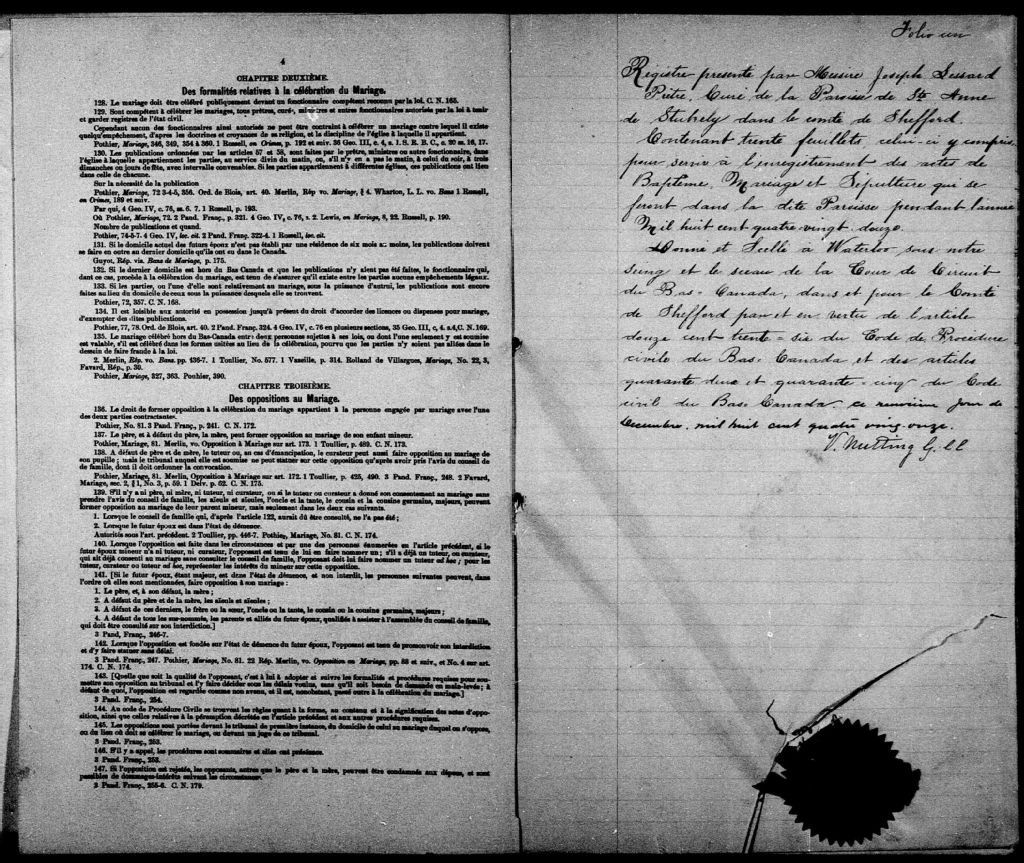 4
CHAPITRE DEUXIÈME.
Des formalités relatives à la célébration du Mariage.
128. Le mariage doit être célébré publiquement devant un fonctionnaire compétent reconnu par la loi. C. N. 165.
129. Sont compétents à célébrer les mariages, tous prêtres, curés, ministres et autres fonctionnaires autorisés par la loi à tenir
et garder registres de l'état civil.
Cependant aucun des fonctionnaires ainsi autorisés ne peut être contraint à célébrer un mariage contre lequel il existe
quelqu'empêchement, d'après les doctrines et croyances de sa religion, et la discipline de l'église à laquelle il appartient.
Pothier, Mariage, 346, 349, 354 à 360. 1 Russell, on Crimes, p. 192 et suiv. 36 Geo. III, c. 4, s. 1. S. R. B. C., c. 20 ss. 16, 17.
130. Les publications ordonnées par les articles 57 et 58, sont faites par le prêtre, ministres ou autre fonctionnaire, dans
l'église à laquelle appartiennent les parties, au service divin du matin, ou, s'il n'y en a pas le matin, à celui du soir, à trois
dimanches ou jours de fête, avec intervalle convenables. Si les parties appartiennent à différentes églises, ces publications ont lieu
dans celle de chacune.
Sur la nécessité de la publication
Pothier, Mariage, 72 3-4-5, 356. Ord. de Blois, art. 40. Merlin, Rép vo. Mariage, § 4. Wharton, L. L. vo. Bans 1 Russell,
on Crimes, 189 et suiv.
Par qui, 4 Geo. IV, c. 76, ss. 6. 7. 1 Russell, p. 193.
Où Pothier, Mariage, 72. 2 Pand. Franç., p. 321. 4 Geo. IV, c. 76, s. 2. Lewis, on Mariage, 8, 22. Russell, p. 190.
Nombre de publications et quand.
Pothier, 74-5-7. 4 Geo. IV, loc. cit. 2 Pand. Franç. 322-4. 1 Russell, loc. cit.
131. Si le domicile actuel des futurs époux n'est pas établi par une résidence de six mois au moins, les publications doivent
se faire en outre au dernier domicile qu'ils ont eu dans le Canada.
Guyot, Rép. vis. Bans de Mariage, p. 175.
132. Si le dernier domicile est hors du Bas Canada et que les publications n'y aient pas été faites, le fonctionnaire qui,
dans ce cas, procède à la célébration du mariage, est tenu de s'assurer qu'il existe entre les parties aucuns empêchements légaux.
133. Si les parties, ou l'une d'elle sont relativement au mariage, sous la puissance d'autrui, les publications sont encore
faites au lieu du domicile de ceux sous la puissance desquels elle se trouvent.
Pothier, 72, 357. C. N. 168.
134. Il est loisible aux autorité en possession jusqu'à présent du droit d'accorder des licences ou dispenses pour mariage,
d'exempter des dites publications.
Pothier, 77, 78. Ord. de Blois, art. 40. 2 Pand. Franç. 324. 4 Geo. IV, c. 76 en plusieurs sections, 35 Geo. III, c. 4, s.4, C. N. 169.
135. Le mariage célébré hors du Bas-Canada entre deux personnes sujettes à ses lois, ou dont l'une seulement y est soumise
est valable, s'il est célébré dans les formes usitées au lieu de la célébration, pourvu que les parties n'y soient pas allées dans le
dessein de faire fraude à la loi.
2. Merlin, Rép. vo. Bans. pp. 436-7. 1 Toullier, No. 577. 1 Vazeille, p. 314. Rolland de Villargues, Mariage, No. 22, 3,
Favard, Rép., p. 39.
Pothier, Mariage, 327, 363. Pouhier, 390.
CHAPITRE TROISIÈME.
Des oppositions au Mariage.
136. Le droit de former opposition à la célébration du mariage appartient à la personne engagée par mariage avec l'une
des deux parties contractantes.
Pothier, No. 81. 3 Pand. Franç., p. 241. C. N. 172.
137. Le père, et à défaut du père, la mère, peut former opposition au mariage de son enfant mineur.
Pothier, Mariage, 81. Merlin, vo. Opposition à Mariage sur art. 173. 1 Toullier, p. 489. C. N. 173.
138. A défaut de père et de mère, le tuteur ou, au cas d'émancipation, le curateur peut aussi faire opposition au mariage de
son pupille; mais le tribunal auquel elle est soumise ne peut statuer sur cette opposition qu'après avoir pris l'avis du conseil de
de famille, dont il doit ordonner la convocation.
Pothier, Mariage, 81. Merlin, Opposition à Mariage sur art. 172. 1 Toullier, p. 425, 490. 3 Pand. Franç., 248. 2 Favard,
Mariage, sec. 2, § 1, No. 3, p. 59. 1 Delv. p. 62. C. N. 175.
139. S'il n'y a ni père, ni mère, ni tuteur, ni curateur, ou si le tuteur ou curateur a donné son consentement au mariage sans
prendre l'avis du conseil de famille, les aïeuls et aïeules, l'oncle et la tante, le cousin et la cousine germains, majeurs, peuvent
former opposition au mariage de leur parent mineur, mais seulement dans les deux cas suivants.
1. Lorsque le conseil de famille qui, d'après l'article 122, aurait dû être consulté, ne l'a pas été;
2. Lorsque le futur époux est dans l'état de démence.
Autorités sous l'art. précédent. 2 Toullier, pp. 446-7. Pothier, Mariage, No. 81. C. N. 174.
140. Lorsque l'opposition est faite dans les circonstances et par une des personnes énumérées en l'article précédent, si le
futur époux mineur n'a ni tuteur, ni curateur, l'opposant est tenu de lui en faire nommer un; s'il a déjà un tuteur, ou curateur,
qui ait déjà consenti au mariage sans consulter le conseil de famille, l'opposant doit lui faire nommer un tuteur ad hoc; pour les
tuteur, curateur ou tuteur ad hoc, représenter les intérêts du mineur sur cette opposition.
141. [Si le futur époux, étant majeur, est dans l'état de démence, et non interdit, les personnes suivantes peuvent, dans
l'ordre où elles sont mentionnées, faire opposition à son mariage:
1. Le père, et, à son défaut, la mère;
2. A défaut du père et de la mère, les aïeuls et aïeules;
3. A défaut de ces derniers, le frère ou la sœur, l'oncle ou la tante, le cousin ou la cousine germains, majeurs;
4. A défaut de tous les sus-nommés, les parents et alliés du futur époux, qualifiés à assister à l'assemblée du conseil de famille,
qui doit être consultée sur son interdiction.]
3 Pand, Franç., 246-7.
142. Lorsque l'opposition est fondée sur l'état de démence du futur époux, l'opposant est tenu de promouvoir son interdiction
et d'y faire statuer sans délai.
3 Pand. Franç., 247. Pothier, Mariage, No. 81. 22 Rép. Merlin, vo. Opposition en Mariage, pp. 88 et suiv., et No. 4 sur art.
174. C. N. 174.
143. [Quelle que soit la qualité de l'opposant, c'est à lui à adopter et suivre les formalités et procédures requises pour sou-
mettre son opposition au tribunal et l'y faire décider sous les délais voulus, sans qu'il soit besoin de demande en main-levée; à
défaut de quoi, l'opposition est regardée comme non avenu, et il est, nonobstant, passé outre à la célébration du mariage.]
3 Pand. Franç., 254.
144. Au code de Procédure Civile se trouvent les règles quant à la forme, au contenu et à la signification des actes d'oppo-
sition, ainsi que celles relatives à la péremption décrétée en l'article précédent et aux autres procédures requises.
145. Les oppositions sont portées devant le tribunal de première instance, du domicile de celui au mariage duquel on s'oppose,
ou du lieu où doit se célébrer le mariage, ou devant un juge de ce tribunal.
3 Pand. Franç., 253.
146. S'il y a appel, les procédures sont sommaires et elles ont préséance.
3 Pand. Franç., 258.
147. Si l'opposition est rejetée, les opposants, autres que le père et la mère, peuvent être condamnés aux dépens, et sont
passibles de dommages-intérêts suivant les circonstances.
3 Pand. Franç., 255-6. C. N. 179.
Folio un
Registre presenté par Messire Joseph Lessard
Prêtre, Curé de la Paroisse de Ste Anne
de Stukely dans le comté de Shefford.
Contenant trente feuillets, celui-ci y compris
pour servir à l'enregistrement des actes de
Baptême, Mariage et Sépulture qui se
feront dans la dite Paroisse pendant l'année
Mil huit cent quatre vingt douze.
Donné et Scellé à Waterloo sous notre
seing et le sceau de la Cour de Circuit
du Bas-Canada, dans et pour le Comté
de Shefford par et en vertu de l'article
douze cent trente-six du Code de Procedure
civile du Bas-Canada et des articles
quarante deux et quarante-cinq du Code
civil du Bas-Canada. ce neuvième jour de
Decembre, mil huit cent quatre ving onze.
V. Nutting G.CC